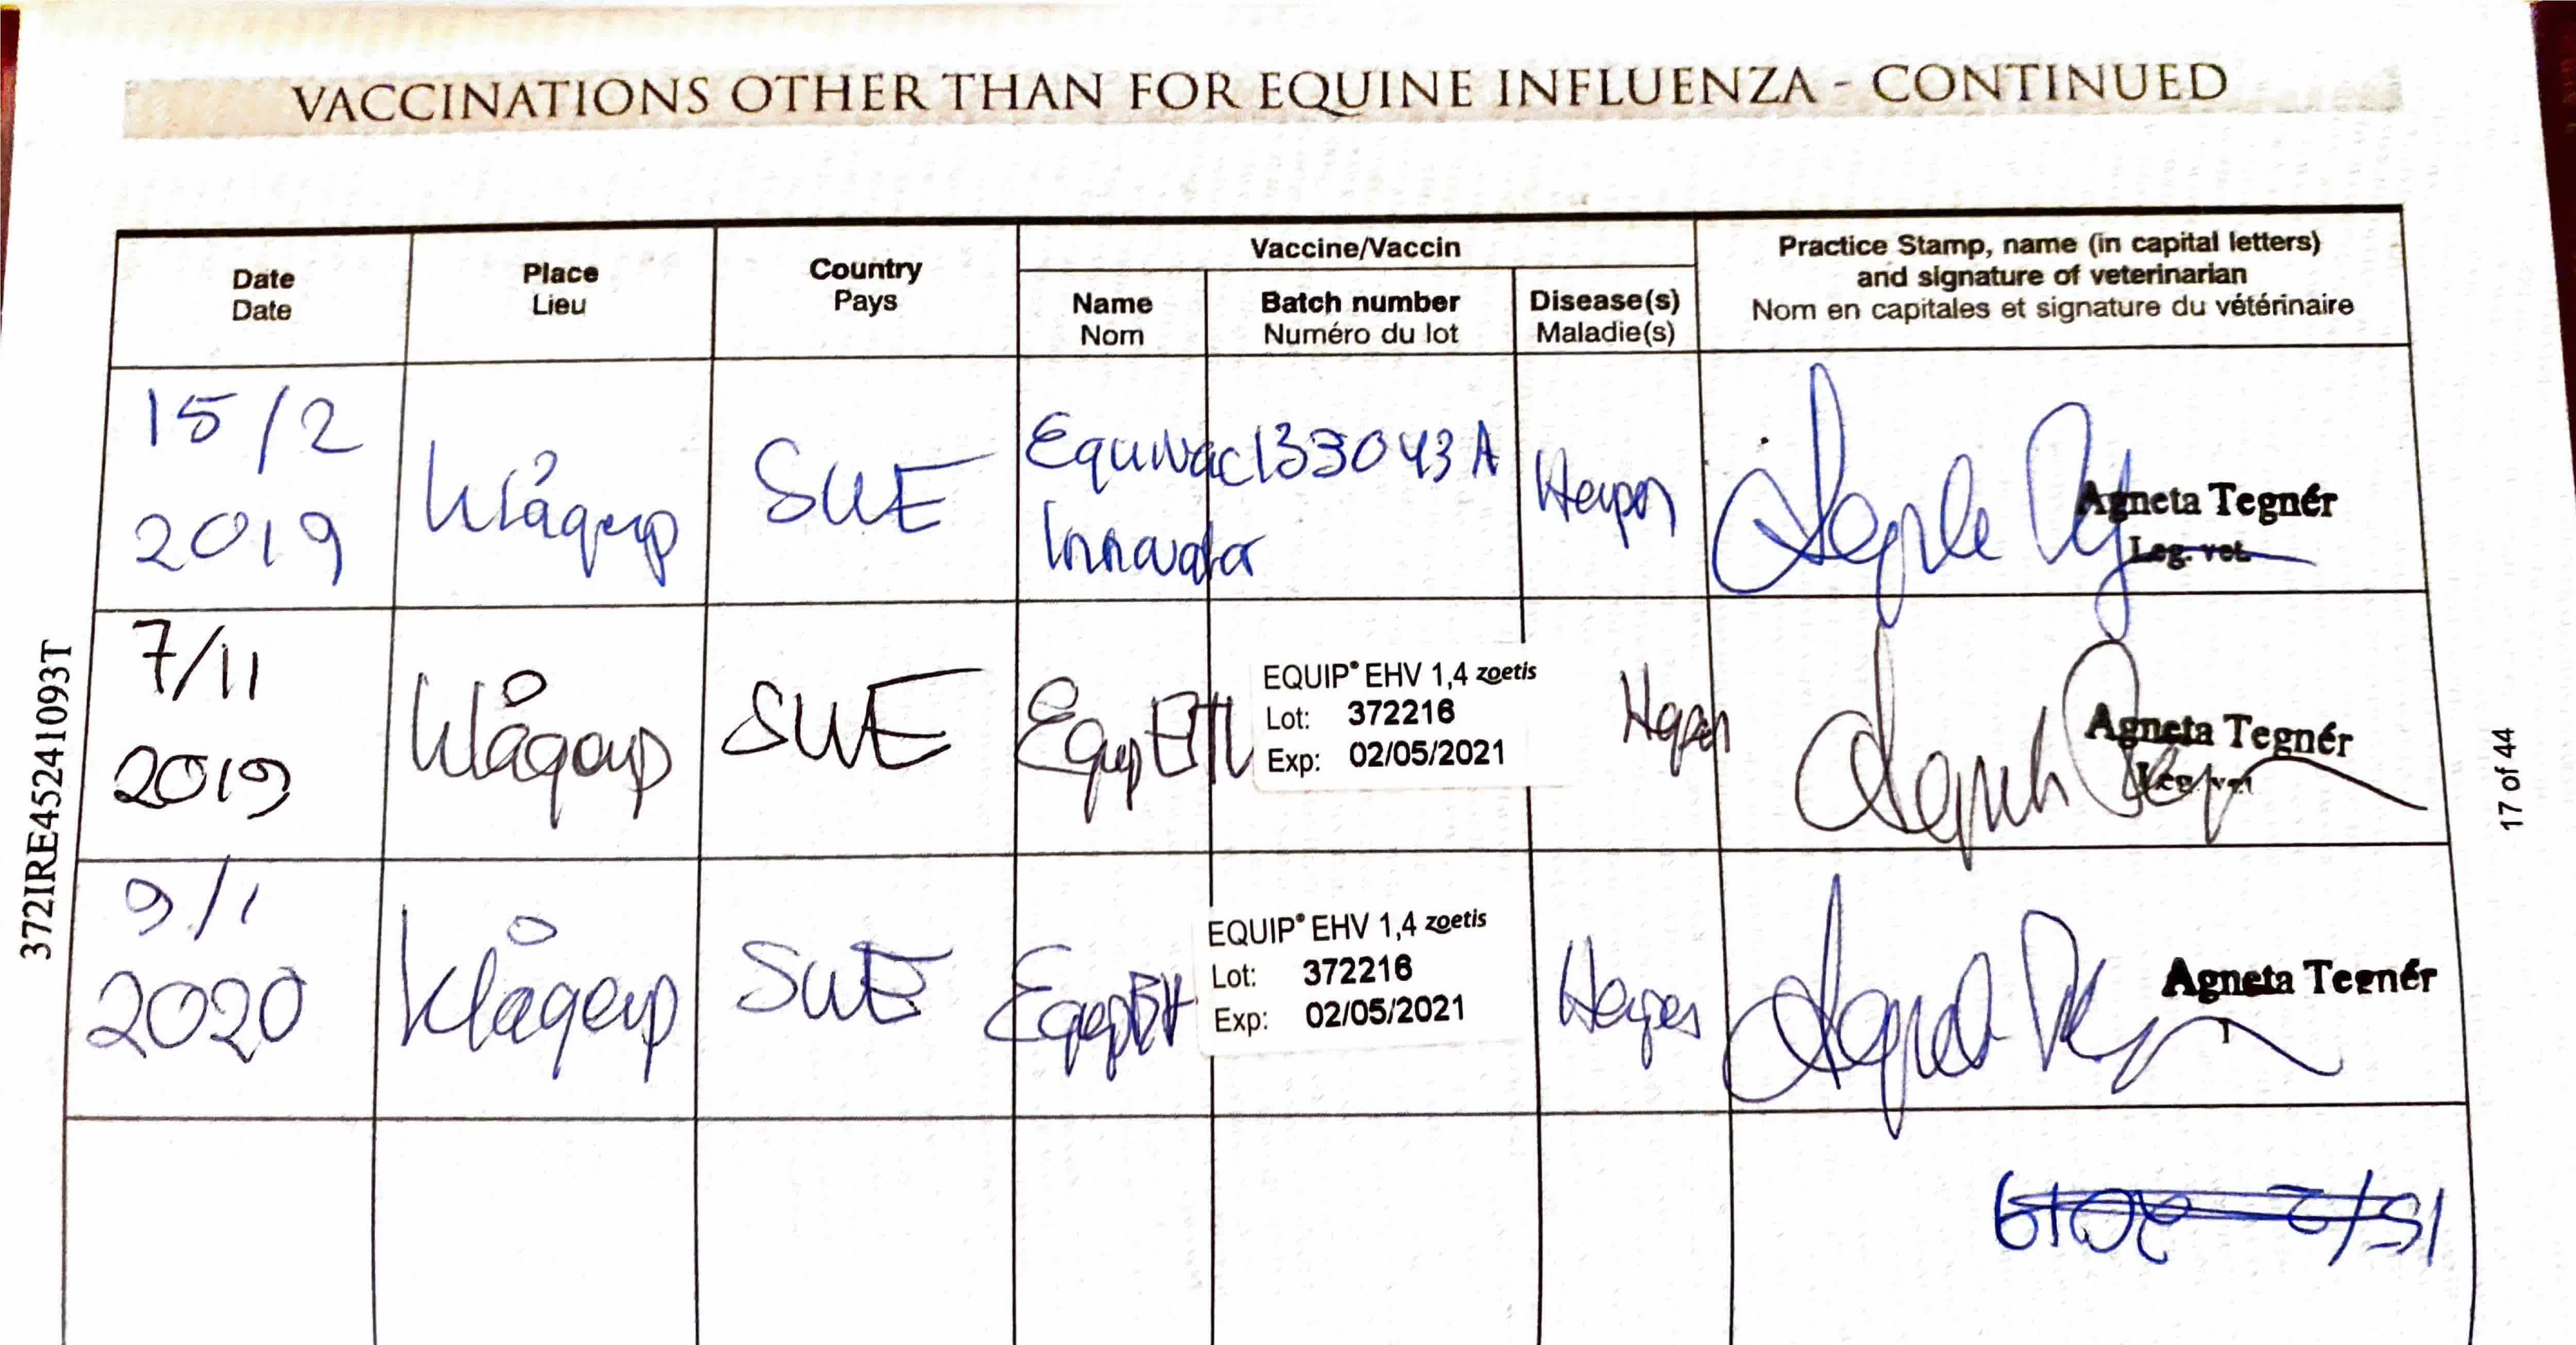 VACCINATIONS OTHER THAN FOR EQUINE INFLUENZA - CONTINUED
Date
Date
Place
Lieu
Country
Pays
Vaccine/Vaccin
Name
Nom
Batch number
Numéro du lot
Disease(s)
Maladie(s)
Practice Stamp, name (in capital letters)
and signature of veterinarian
Nom en capitales et signature du vétérinaire
15/2
2019
Klågerup
SWE
Equivac
Innovator
133043A
Herpes
Agneta Tegnér
Leg. vet.
7/11
2019
Klågerup
SWE
Equip
EQUIP® EHV 1,4 zoetis
Lot: 372216
Exp: 02/05/2021
Herpes
Agneta Tegnér
Leg. vet
9/1
2020
Klågerup
SWE
Equip
EQUIP® EHV 1,4 zoetis
Lot: 372216
Exp: 02/05/2021
Herpes
Agneta Tegnér
15/2 2019
372IRE45241093T
17 of 44